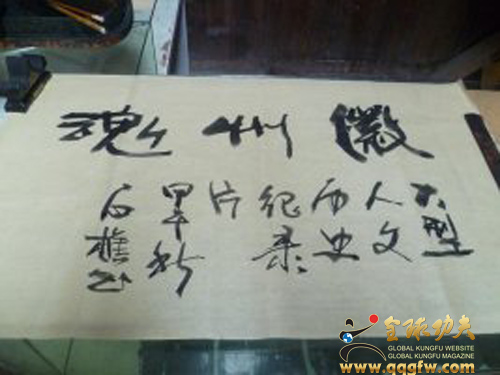 徽州魂
大型
人文
历史
纪录
片
甲午秋
石樵书
全球功夫
GLOBAL KUNGFU WEBSITE
GLOBAL KUNGFU MAGAZINE
www.qqgfw.com